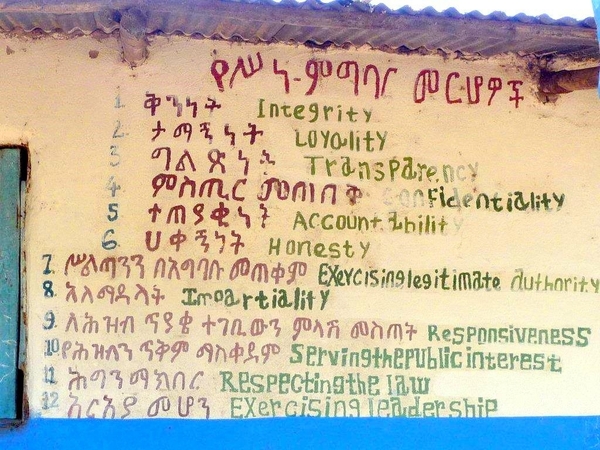 የሥነ-ምግባር መርሆዎች
1. ቅንነት Integrity
2. ታማኝነት LOYALity
3 ግልጽነት Transparency
4 ምስጢር መጠበቅ Confidentiality
5. ተጠያቂነት Accountability
6. ሀቀኝነት Honesty
7. ሥልጣንን በአግባቡ መጠቀም Exercising legitimate authority
8. አለማዳላት Impartiality
9. ለሕዝብ ጥያቄ ተገቢውን ምላሽ መስጠት Responsiveness
10 የሕዝብን ጥቅም ማስቀደም Serving the public interest
11 ሕግን ማክበር Respecting the law
12 አርአያ መሆን Exercising leadership